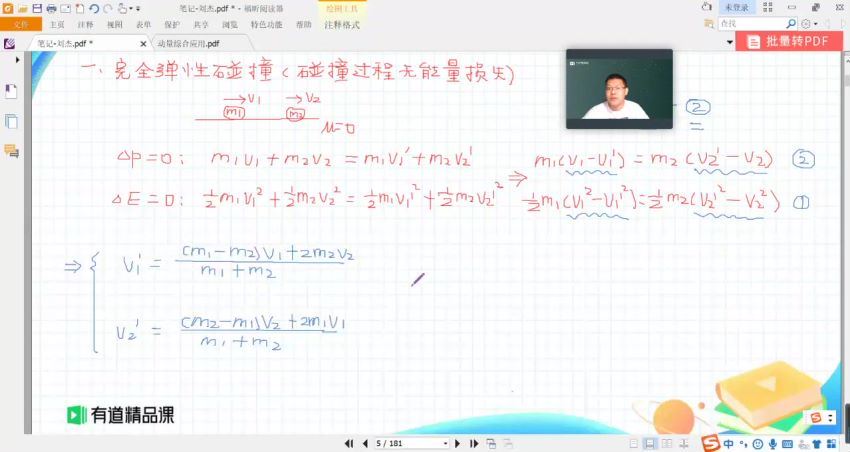 笔记-刘杰.pdf * - 福昕阅读器
绘图工具
未登录
文件 主页 注释 视图 表单 保护 共享 浏览 特色功能 帮助 注释格式
查找
笔记-刘杰.pdf * 动量综合应用.pdf
批量转PDF
一、完全弹性碰撞(碰撞过程无能量损失)
→V1 →V2
m1 m2
μ=0
②
=
ΔP=0: m1V1+m2V2=m1V1'+m2V2' ⇒ m1(V1-V1')=m2(V2'-V2) ②
ΔE=0: ½m1V1²+½m2V2²=½m1V1'²+½m2V2'² ½m1(V1²-V1'²)=½m2(V2'²-V2²) ①
⇒ { V1' = (m1-m2)V1+2m2V2 / m1+m2
V2' = (m2-m1)V2+2m1V1 / m1+m2
有道精品课
5 / 181
中